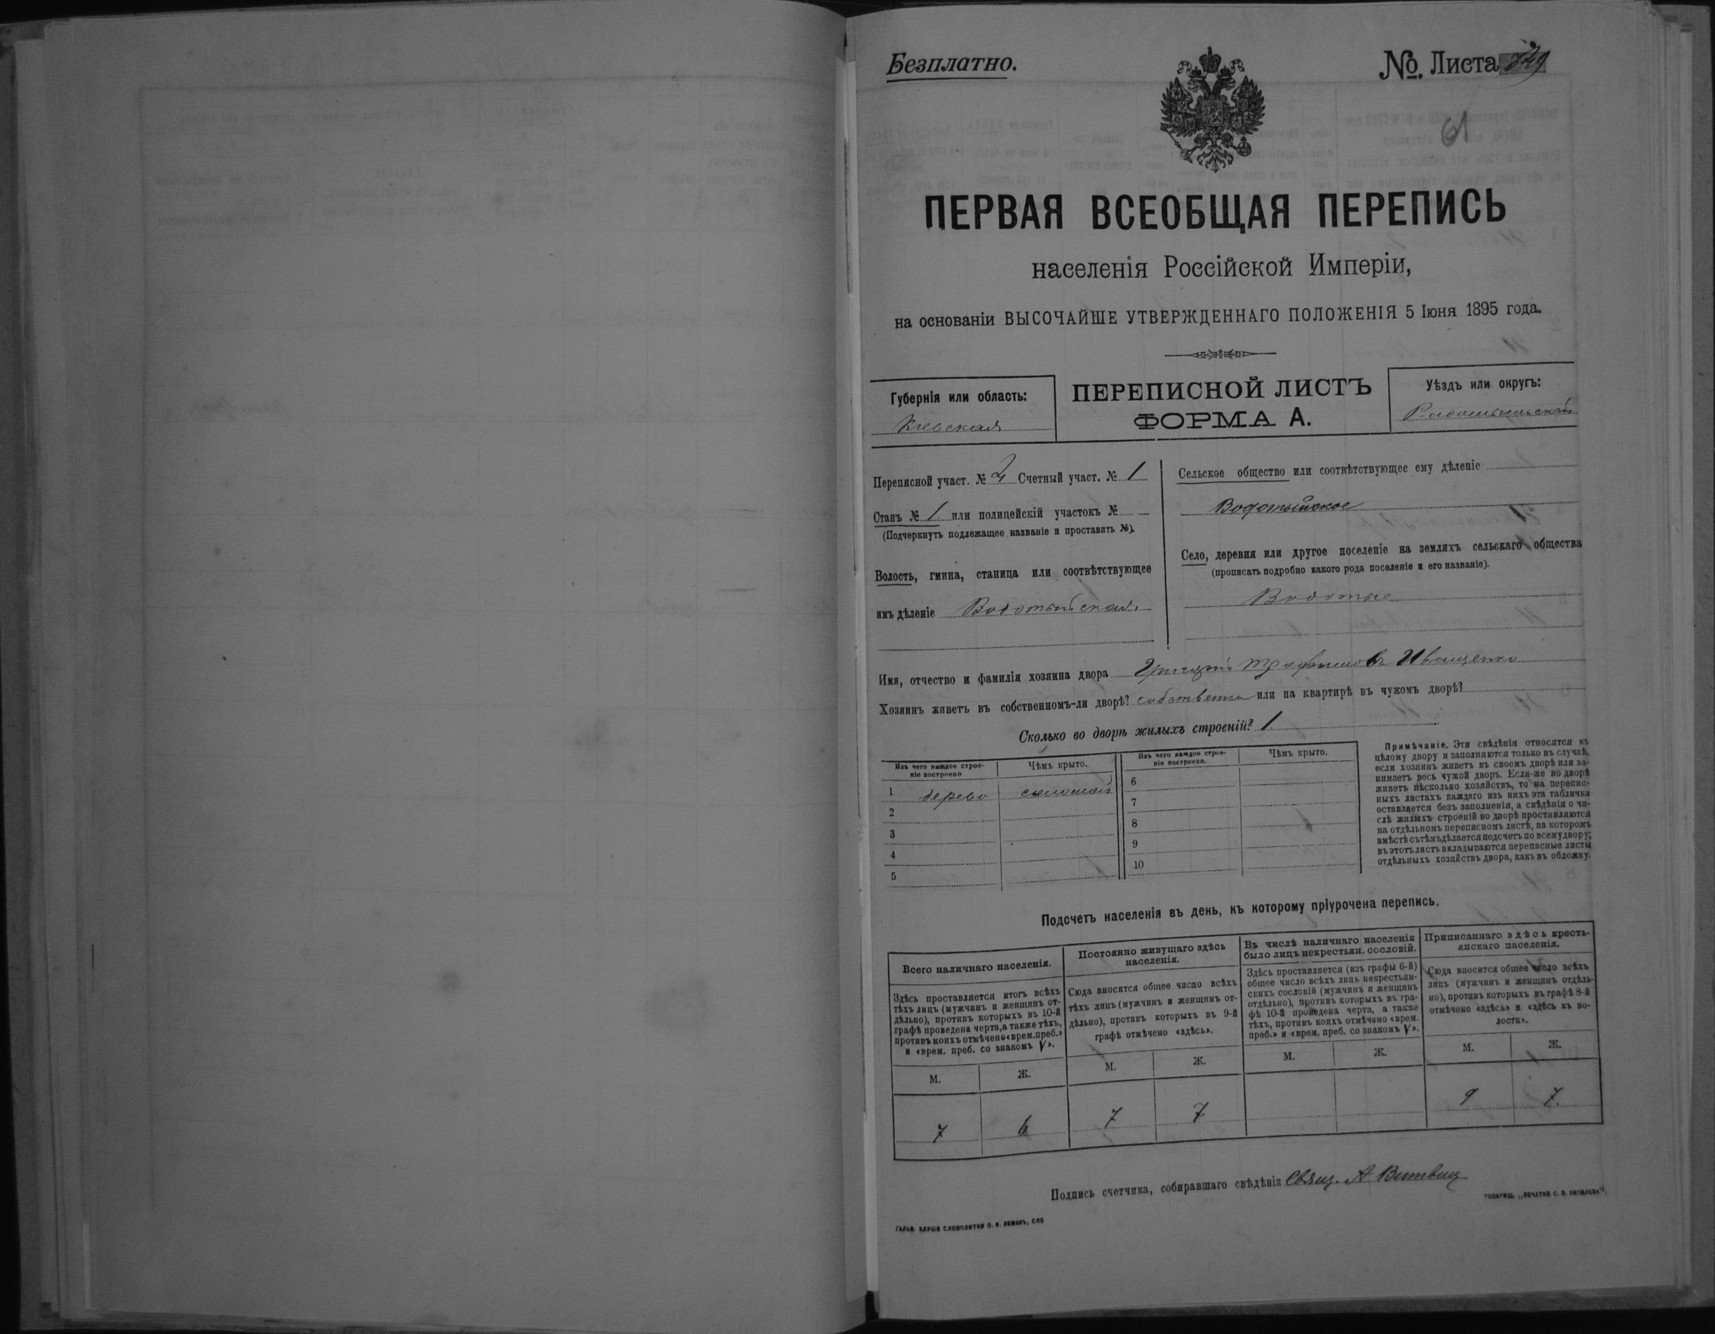 Безплатно.
№. Листа
61
ПЕРВАЯ ВСЕОБЩАЯ ПЕРЕПИСЬ
населенія Россійской Имперіи,
на основаніи ВЫСОЧАЙШЕ УТВЕРЖДЕННАГО ПОЛОЖЕНІЯ 5 Іюня 1895 года.
Губернія или область:
Кіевская
ПЕРЕПИСНОЙ ЛИСТЪ
ФОРМА А.
Уѣздъ или округъ:
Радомысльскій
Переписной участ. № 2 Счетный участ. № 1
Станъ № 1 или полицейскій участокъ № —
(Подчеркнуть подлежащее названіе и проставить №).
Волость, гмина, станица или соотвѣтствующее
имъ дѣленіе Водотыйская
Сельское общество или соотвѣтствующее ему дѣленіе
Водотыйское
Село, деревня или другое поселеніе на земляхъ сельскаго общества
(прописать подробно какого рода поселеніе и его названіе).
Водотые
Имя, отчество и фамилія хозяина двора Григорій Трофимовъ Иващенко
Хозяинъ живетъ въ собственномъ-ли дворѣ? собственно или на квартирѣ въ чужомъ дворѣ?
Сколько во дворѣ жилыхъ строеній? 1
Изъ чего каждое строе-
ніе построено
Чѣмъ крыто.
1 дерево соломой
2
3
4
5
Изъ чего каждое строе-
ніе построено.
Чѣмъ крыто.
6
7
8
9
10
Примѣчаніе. Эти свѣдѣнія относятся къ
цѣлому двору и заполняются только въ случаѣ,
если хозяинъ живетъ въ своемъ дворѣ или за-
нимаетъ весь чужой дворъ. Если-же во дворѣ
живетъ нѣсколько хозяйствъ, то на перепис-
ныхъ листахъ каждаго изъ нихъ эта табличка
оставляется безъ заполненія, а свѣдѣнія о чи-
слѣ жилыхъ строеній во дворѣ проставляются
на отдѣльномъ переписномъ листѣ, на которомъ
вмѣстѣ съ тѣмъ дѣлается подсчетъ по всему двору;
въ этотъ листъ вкладываются переписные листы
отдѣльныхъ хозяйствъ двора, какъ въ обложку.
Подсчетъ населенія въ день, къ которому пріурочена перепись.
Всего наличнаго населенія.
Здѣсь проставляется итогъ всѣхъ
тѣхъ лицъ (мужчинъ и женщинъ от-
дѣльно), противъ которыхъ въ 10-й
графѣ проведена черта, а также тѣхъ,
противъ коихъ отмѣчено «врем. преб.»
и «врем. преб. со знакомъ V».
М. Ж.
7 6
Постоянно живущаго здѣсь
населенія.
Сюда вносится общее число всѣхъ
тѣхъ лицъ (мужчинъ и женщинъ от-
дѣльно), противъ которыхъ въ 9-й
графѣ отмѣчено «здѣсь».
М. Ж.
7 7
Въ числѣ наличнаго населенія
было лицъ некрестьян. сословій.
Здѣсь проставляется (изъ графы 6-й)
общее число всѣхъ лицъ некрестьян-
скихъ сословій (мужчинъ и женщинъ
отдѣльно), противъ которыхъ въ гра-
фѣ 10-й проведена черта, а также
тѣхъ, противъ коихъ отмѣчено «врем.
преб.» и «врем. преб. со знакомъ V».
М. Ж.
Приписаннаго здѣсь кресть-
янскаго населенія.
Сюда вносится общее число всѣхъ
лицъ (мужчинъ и женщинъ отдѣль-
но), противъ которыхъ въ графѣ 8-й
отмѣчено «здѣсь» и «здѣсь въ во-
лости».
М. Ж.
9 7
Подпись счетчика, собиравшаго свѣдѣнія Свящ. А Витвиц
ГАЛЬВ. КЛИШЕ СЛОВОЛИТНИ О. И. ЛЕМАНЪ, СПБ
ТОВАРИЩ. „ПЕЧАТНЯ С. П. ЯКОВЛЕВА“